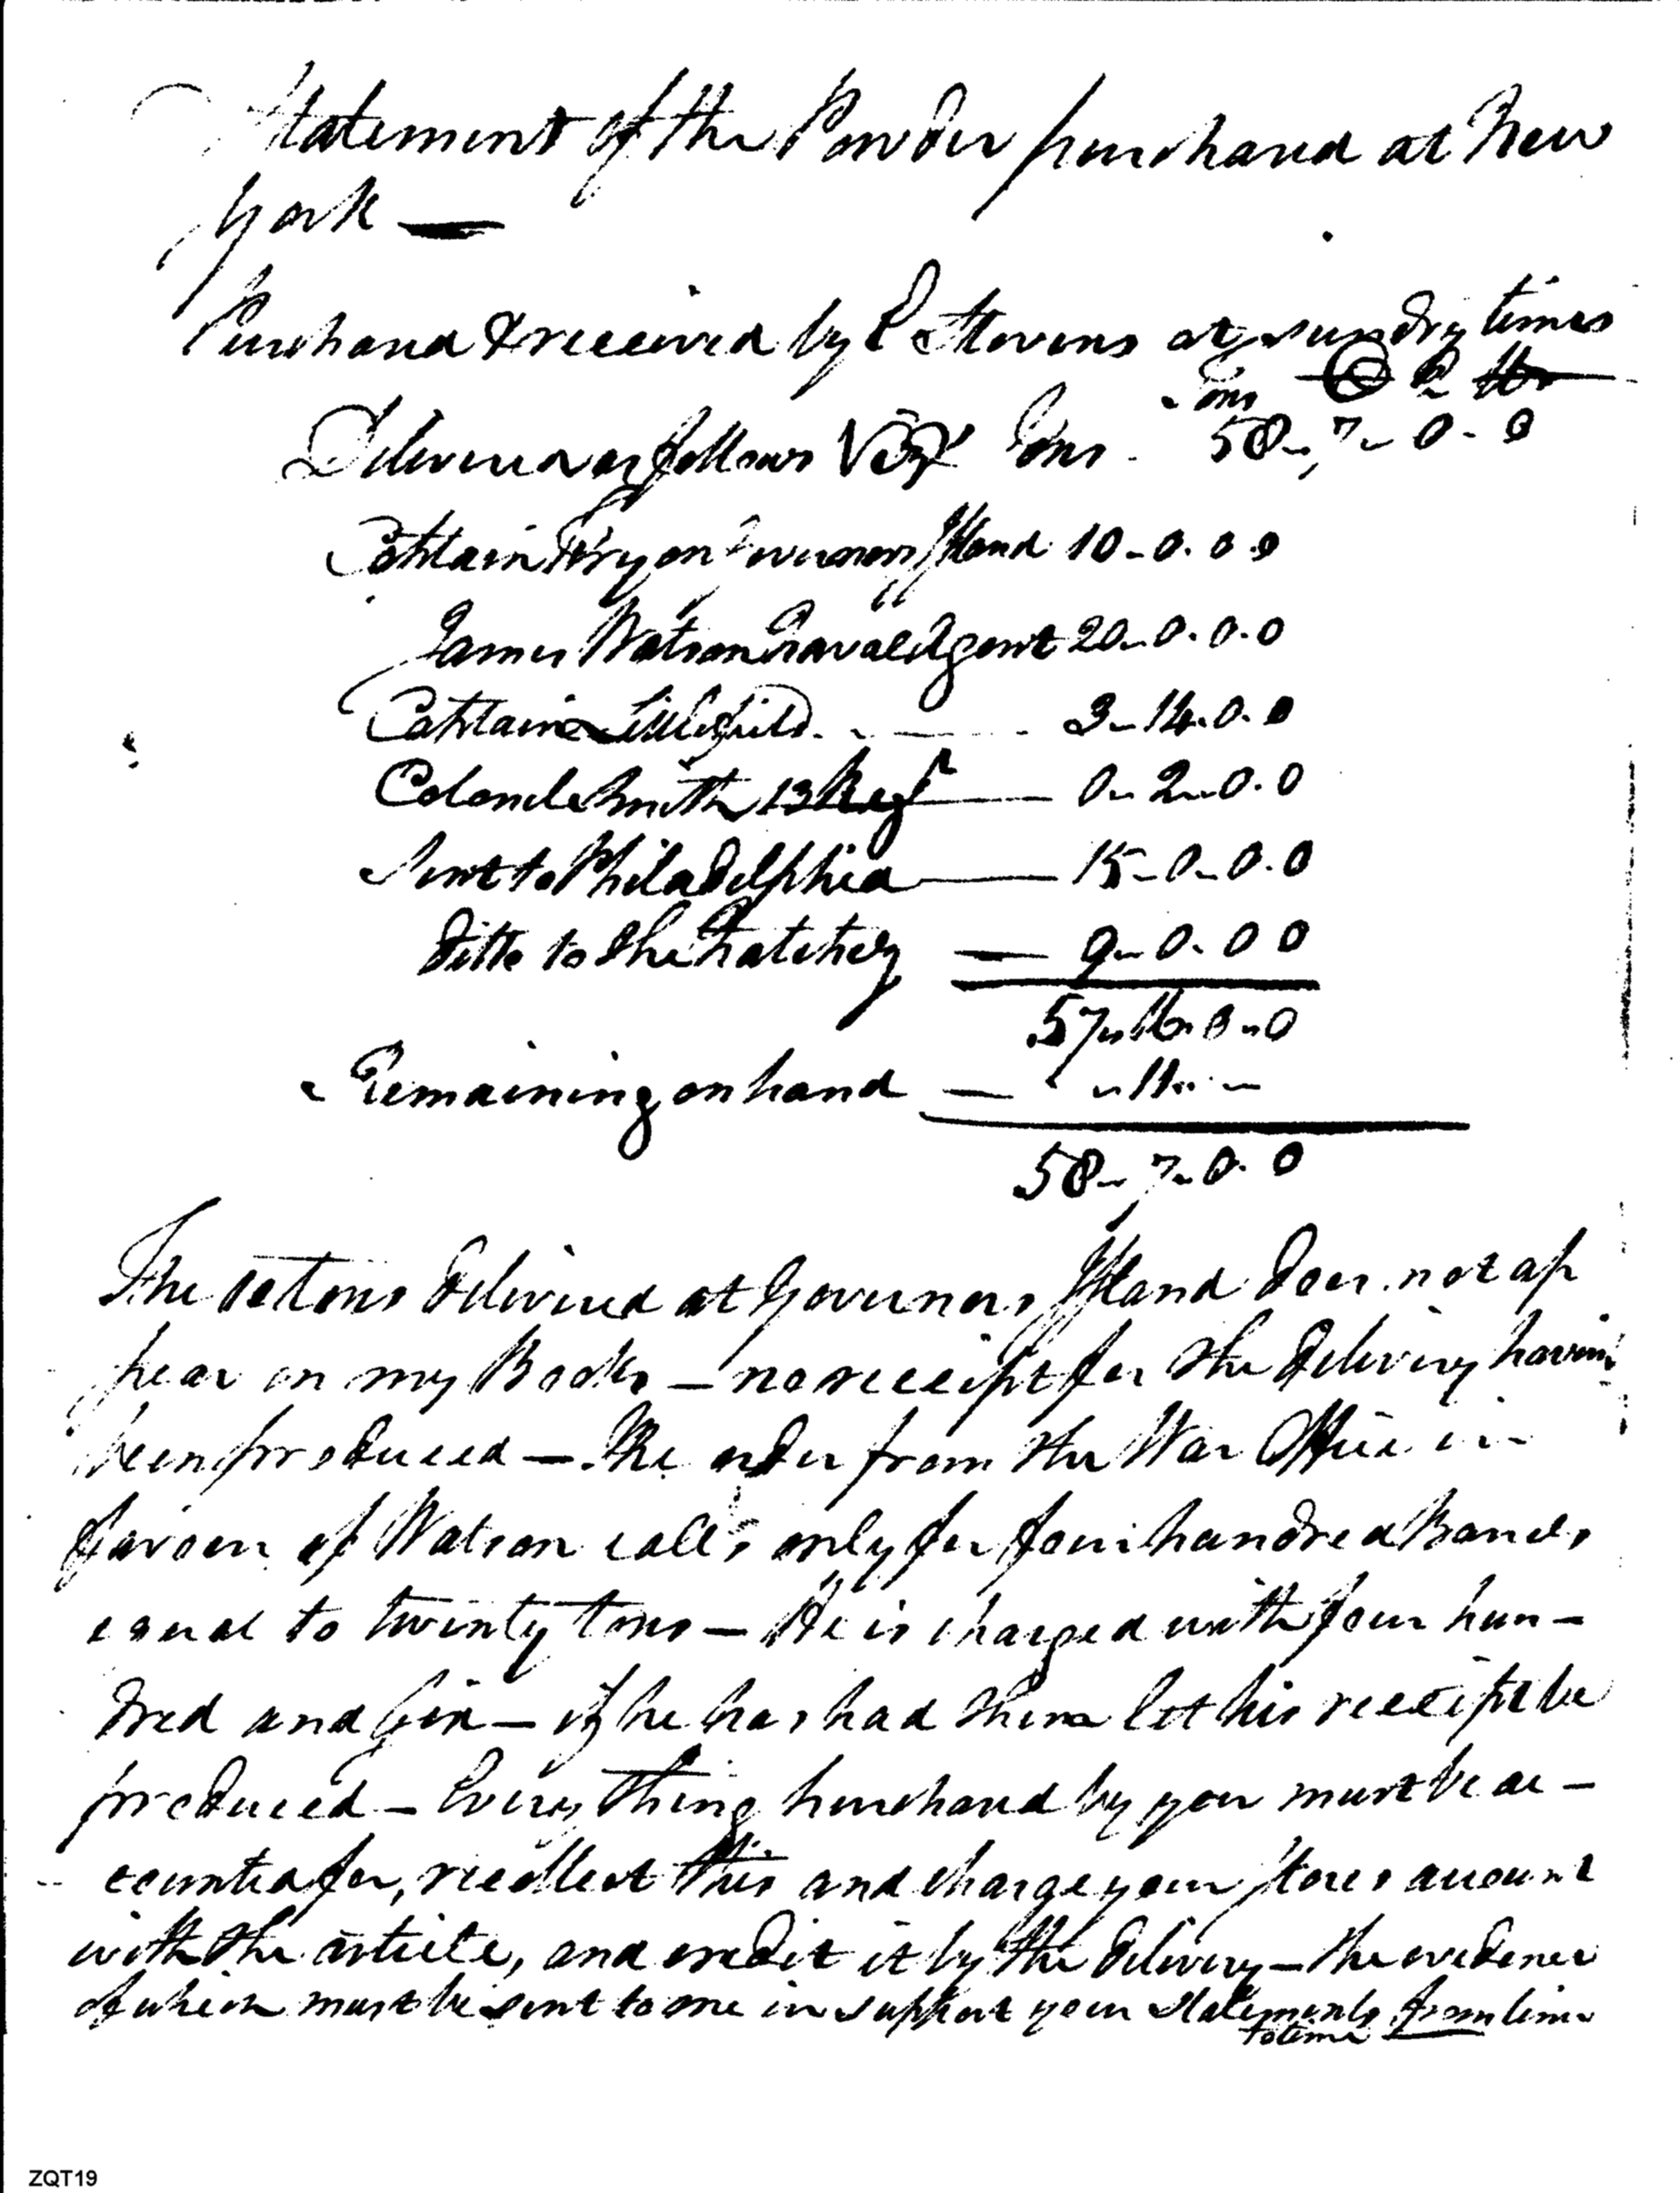 Statement of the Powder purchased at New
York —
Purchased & received by E Stevens at sundry times
Tons C Q lb
Delivered as follows Viz Tons 58-7-0-0
Captain Fry on Governors Island 10-0-0-0
James Watson Naval Agent 20-0-0-0
Captain Littlefield 3-14-0-0
Colonel Smith 13 Regt — 0-2-0-0
Sent to Philadelphia — 15-0-0-0
ditto to the Natchez — 9-0-0 0
57-16-0-0
Remaining on hand — - 11 - -
58-7-0-0
The 10 tons delivered at Governors Island does not ap
pear on my Books — no receipt for the delivery having
been produced — The order from the War Office in
favour of Watson calls only for four hundred Barrels
equal to twenty tons — He is charged with four hun-
dred and six — if he has had them let his receipt be
produced — Every thing purchased by you must be ac-
counted for, recollect this and charge your stores account
with the article, and credit it by the delivery — the evidence
of which must be sent to me in support your statements from time
to time
ZQT19